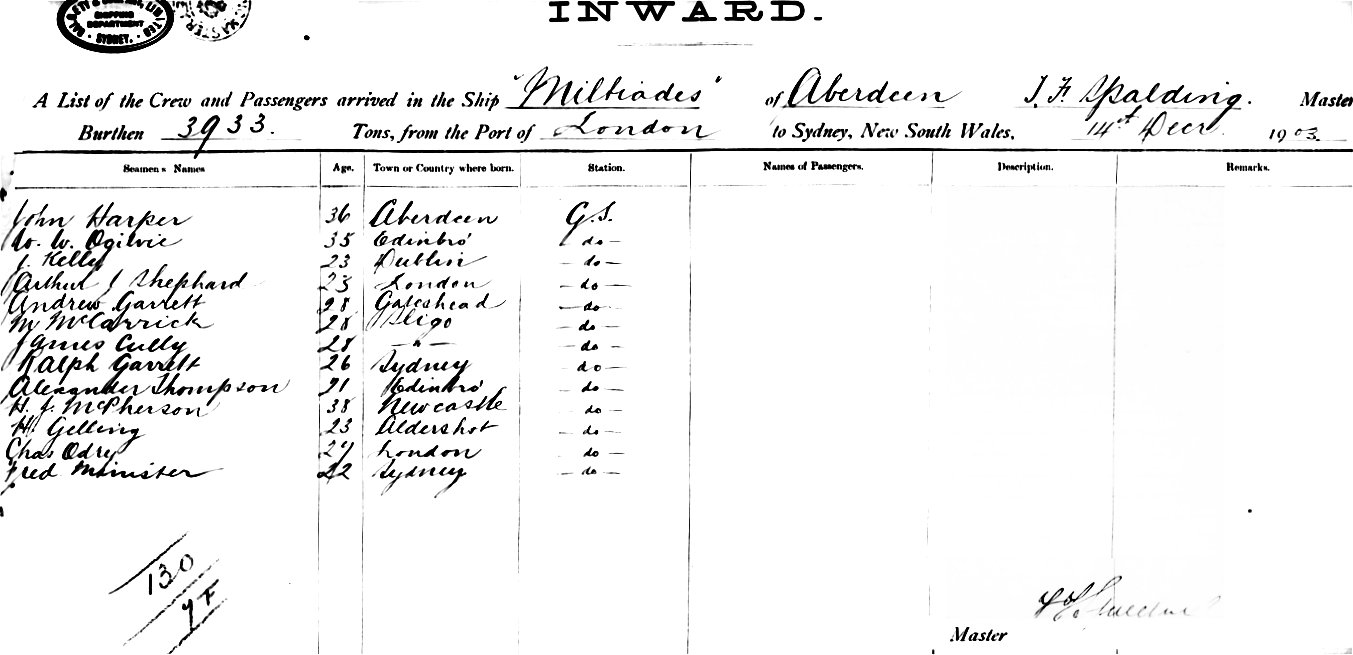 DALGETY & COMPANY, LIMITED
SHIPPING DEPARTMENT
SYDNEY.
MASTER
INWARD.
A List of the Crew and Passengers arrived in the Ship "Miltiades" of Aberdeen J. F. Spalding. Master
Burthen 3933. Tons, from the Port of London to Sydney, New South Wales, 14th Decr. 1903.
Seamens Names Age. Town or Country where born. Station. Names of Passengers. Description. Remarks.
John Harper 36 Aberdeen G.S.
W. W. Ogilvie 35 Edinbro' - do -
J. Kelly 23 Dublin - do -
Arthur J Shephard 23 London - do -
Andrew Garrett 28 Gateshead - do -
M McCarrick 28 Sligo - do -
James Cully 28 - " - - do -
Ralph Garrett 26 Sydney - do -
Alexander Thompson 21 Edinbro' - do -
H. J. McPherson 38 Newcastle - do -
H. Gelling 23 Aldershot - do -
Chas Odry 27 London - do -
Fred Mainister 22 Sydney - do -
130
Master